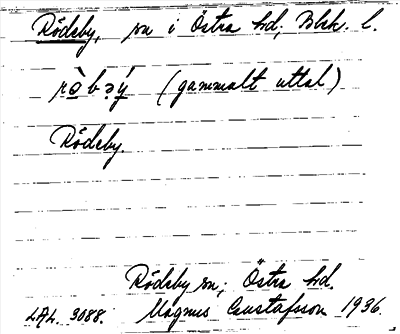 Rödeby, sn i Östra hd; Blek. l.
(gammalt uttal)
Rödeby.
Rödeby sn; Östra hd.
LAL. 3088. Magnus Gustafsson 1936.